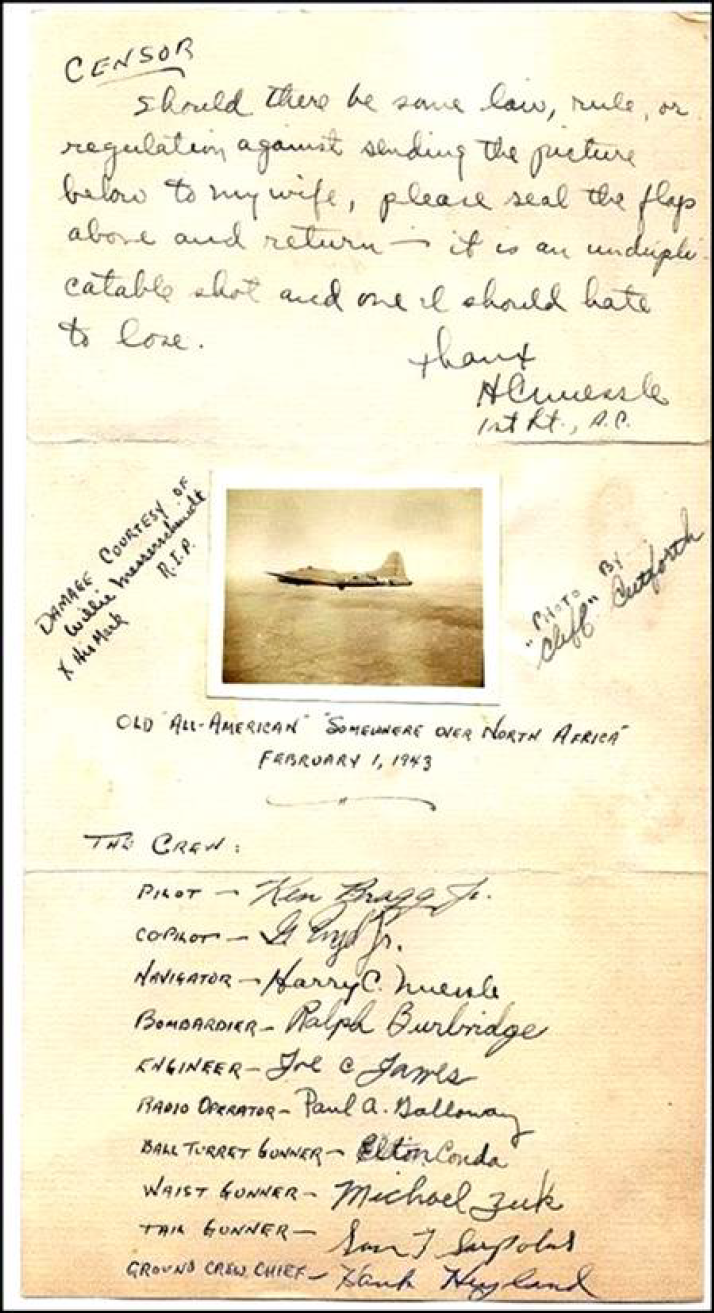 CENSOR
Should there be some law, rule, or
regulation against sending the picture
below to my wife, please seal the flap
above and return — it is an undupli-
catable shot and one I should hate
to lose.
thanx
HCNuessle
1st Lt., A.C.
DAMAGE COURTESY OF
Willie Messerschmidt
R.I.P.
X His Mark
"PHOTO" BY
"Cliff" Cutforth
OLD "ALL-AMERICAN" "SOMEWHERE OVER NORTH AFRICA"
FEBRUARY 1, 1943
THE CREW:
PILOT — Ken Bragg Jr.
COPILOT — G Boyd Jr.
NAVIGATOR — Harry C. Nuessle
BOMBARDIER — Ralph Burbridge
ENGINEER — Joe C James
RADIO OPERATOR — Paul A. Galloway
BALL TURRET GUNNER — Elton Conda
WAIST GUNNER — Michael Zuk
TAIL GUNNER — Sam T Sarpolus
GROUND CREW CHIEF — Hank Hyland